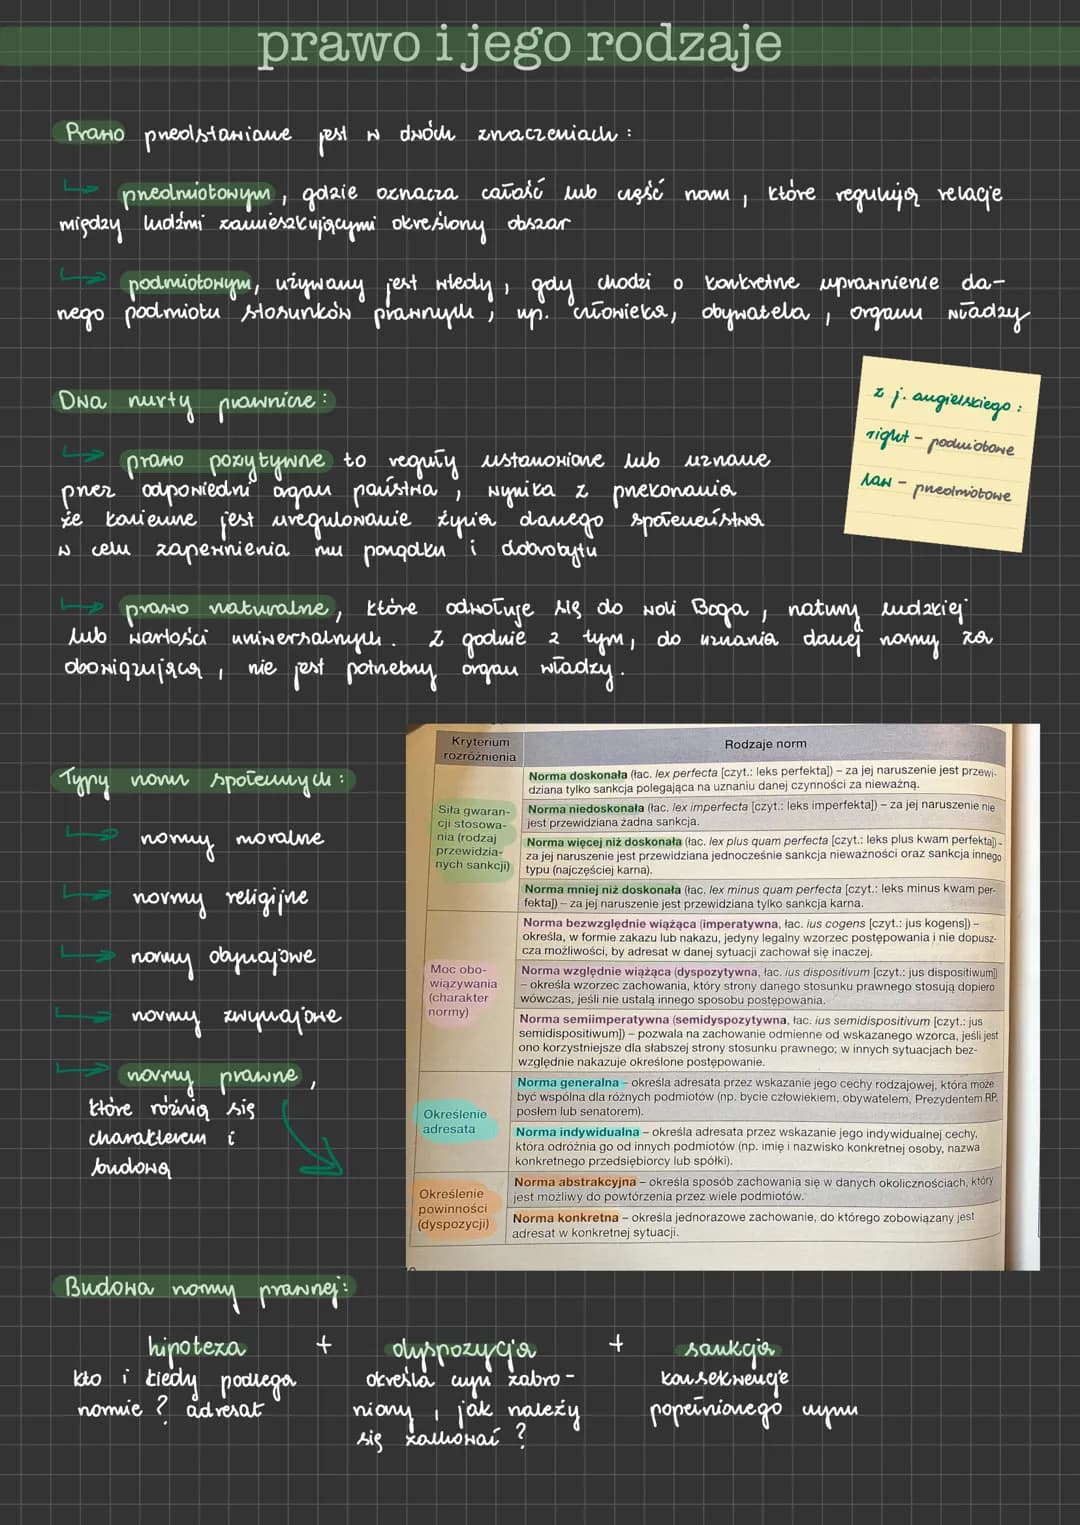 prawo i jego rodzaje
Prawo przedstawiane jest w dwóch znaczeniach :
przedmiotowym, gdzie oznacza całość lub część norm, które regulują relacje
między ludźmi zamieszkującymi określony obszar
podmiotowym, używany jest wtedy, gdy chodzi o konkretne uprawnienie da-
nego podmiotu stosunków prawnych, np. człowieka, obywatela, organu władzy
z j. angielskiego :
right - podmiotowe
law - przedmiotowe
Dwa nurty prawnicze :
prawo pozytywne to reguły ustanowione lub uznane
przez odpowiedni organ państwa, wynika z przekonania
że konieczne jest uregulowanie życia danego społeczeństwa
w celu zapewnienia mu porządku i dobrobytu
prawo naturalne, które odwołuje się do woli Boga, natury ludzkiej
lub wartości uniwersalnych. Z godnie z tym, do uznania danej normy za
obowiązującą, nie jest potrzebny organ władzy.
Typy norm społecznych :
normy moralne
normy religijne
normy obyczajowe
normy zwyczajowe
normy prawne,
które różnią się
charakterem i
budową
Kryterium
rozróżnienia
Rodzaje norm
Siła gwaran-
cji stosowa-
nia (rodzaj
przewidzia-
nych sankcji)
Norma doskonała (łac. lex perfecta [czyt.: leks perfekta]) – za jej naruszenie jest przewi-
dziana tylko sankcja polegająca na uznaniu danej czynności za nieważną.
Norma niedoskonała (łac. lex imperfecta [czyt.: leks imperfekta]) – za jej naruszenie nie
jest przewidziana żadna sankcja.
Norma więcej niż doskonała (łac. lex plus quam perfecta [czyt.: leks plus kwam perfekta]) –
za jej naruszenie jest przewidziana jednocześnie sankcja nieważności oraz sankcja innego
typu (najczęściej karna).
Norma mniej niż doskonała (łac. lex minus quam perfecta [czyt.: leks minus kwam per-
fekta]) – za jej naruszenie jest przewidziana tylko sankcja karna.
Moc obo-
wiązywania
(charakter
normy)
Norma bezwzględnie wiążąca (imperatywna, łac. ius cogens [czyt.: jus kogens]) –
określa, w formie zakazu lub nakazu, jedyny legalny wzorzec postępowania i nie dopusz-
cza możliwości, by adresat w danej sytuacji zachował się inaczej.
Norma względnie wiążąca (dyspozytywna, łac. ius dispositivum [czyt.: jus dispositiwum])
– określa wzorzec zachowania, który strony danego stosunku prawnego stosują dopiero
wówczas, jeśli nie ustalą innego sposobu postępowania.
Norma semiimperatywna (semidyspozytywna, łac. ius semidispositivum [czyt.: jus
semidispositiwum]) – pozwala na zachowanie odmienne od wskazanego wzorca, jeśli jest
ono korzystniejsze dla słabszej strony stosunku prawnego; w innych sytuacjach bez-
względnie nakazuje określone postępowanie.
Określenie
adresata
Norma generalna – określa adresata przez wskazanie jego cechy rodzajowej, która może
być wspólna dla różnych podmiotów (np. bycie człowiekiem, obywatelem, Prezydentem RP,
posłem lub senatorem).
Norma indywidualna – określa adresata przez wskazanie jego indywidualnej cechy,
która odróżnia go od innych podmiotów (np. imię i nazwisko konkretnej osoby, nazwa
konkretnego przedsiębiorcy lub spółki).
Określenie
powinności
(dyspozycji)
Norma abstrakcyjna – określa sposób zachowania się w danych okolicznościach, który
jest możliwy do powtórzenia przez wiele podmiotów.
Norma konkretna – określa jednorazowe zachowanie, do którego zobowiązany jest
adresat w konkretnej sytuacji.
Budowa normy prawnej:
hipoteza + dyspozycja + sankcja
kto i kiedy podlega
normie ? adresat
określa czyn zabro-
niony, jak należy
się zachować ?
konsekwencje
popełnionego czynu